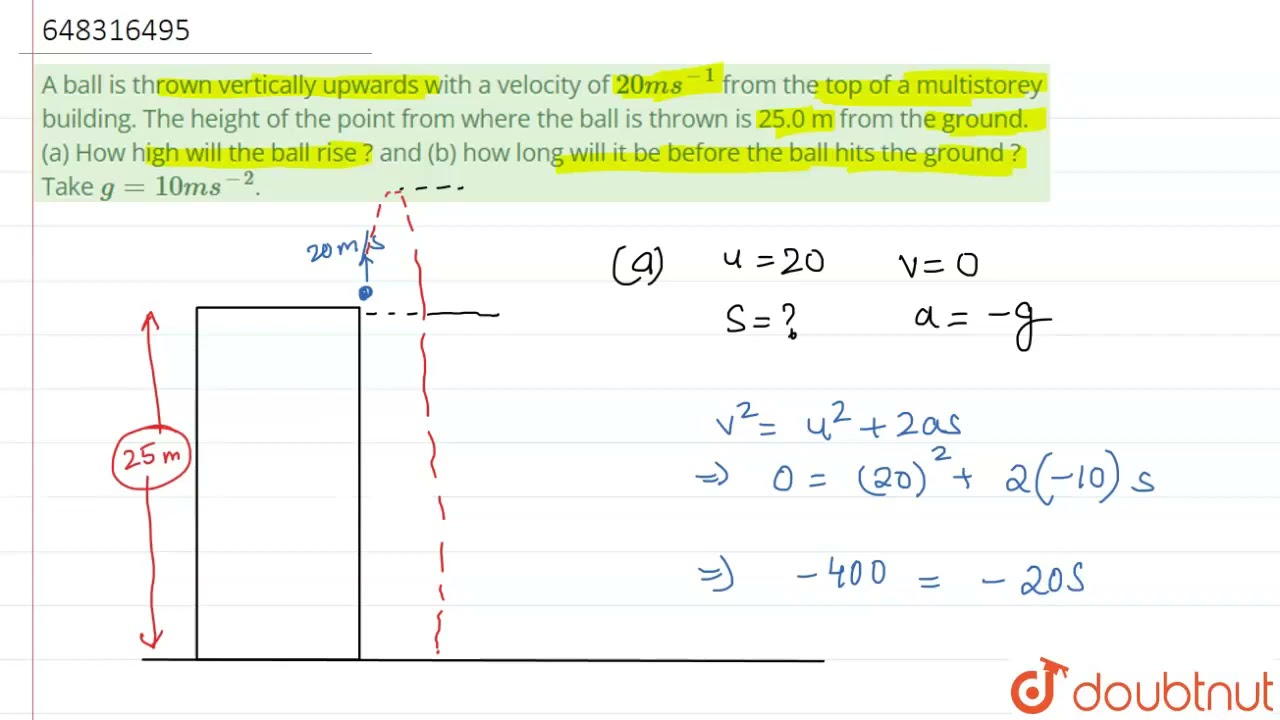 648316495
A ball is thrown vertically upwards with a velocity of 20ms⁻¹ from the top of a multistorey
building. The height of the point from where the ball is thrown is 25.0 m from the ground.
(a) How high will the ball rise ? and (b) how long will it be before the ball hits the ground ?
Take g = 10ms⁻².
20 m/s
(a) u = 20 v = 0
S = ? a = -g
25 m
v² = u² + 2as
⇒ 0 = (20)² + 2(-10) s
⇒ -400 = -20S
doubtnut